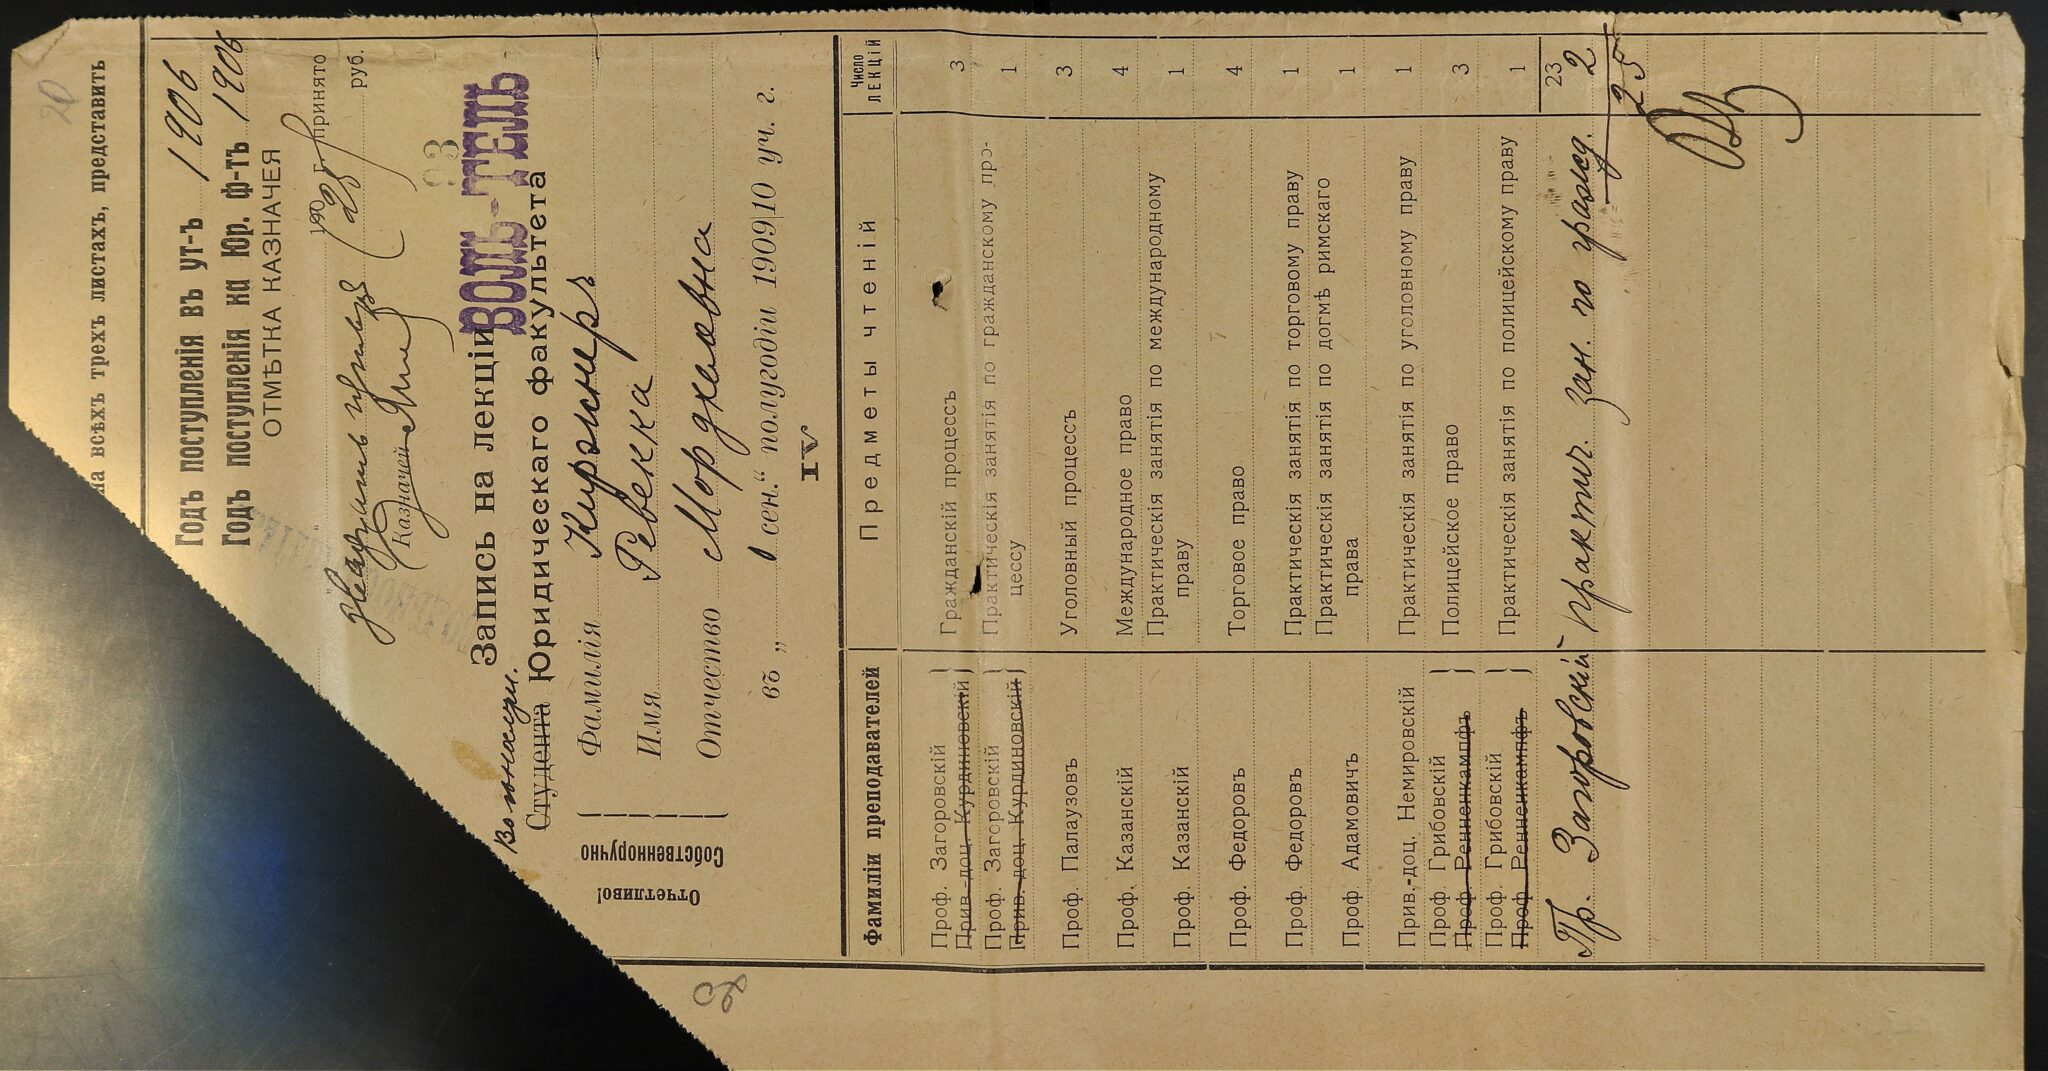 на всѣхъ трехъ листахъ, представить
20
Годъ поступленія въ ут-ъ 1906
Годъ поступленія на Юр. ф-тъ 1906
ОТМѢТКА КАЗНАЧЕЯ
190 г. принято
руб.
(25)
Казначей
93
ВОЛЬ-ТЕЛЬ
Запись на лекціи
Вольнослуш.
Студента Юридическаго факультета
Отчетливо!
Собственноручно
Фамилія Киржнеръ
Имя Ревекка
Отчество Мордховна
въ „1 сен.“ полугодіи 1909|10 уч. г.
IV
Фамиліи преподавателей Предметы чтеній Число лекцій
Проф. Загоровскій Гражданскій процессъ 3
Прив.-доц. Курдиновскій
Проф. Загоровскій Практическія занятія по гражданскому про-
Прив.-доц. Курдиновскій цессу 1
Проф. Палаузовъ Уголовный процессъ 3
Проф. Казанскій Международное право 4
Проф. Казанскій Практическія занятія по международному
праву 1
Проф. Федоровъ Торговое право 4
Проф. Федоровъ Практическія занятія по торговому праву 1
Проф. Адамовичъ Практическія занятія по догмѣ римскаго
права 1
Прив.-доц. Немировскій Практическія занятія по уголовному праву 1
Проф. Грибовскій Полицейское право 3
Проф. Ренненкампфъ
Проф. Грибовскій Практическія занятія по полицейскому праву 1
Проф. Ренненкампфъ
23
Пр. Загоровскій практич. зан. по гражд. 2
25
20